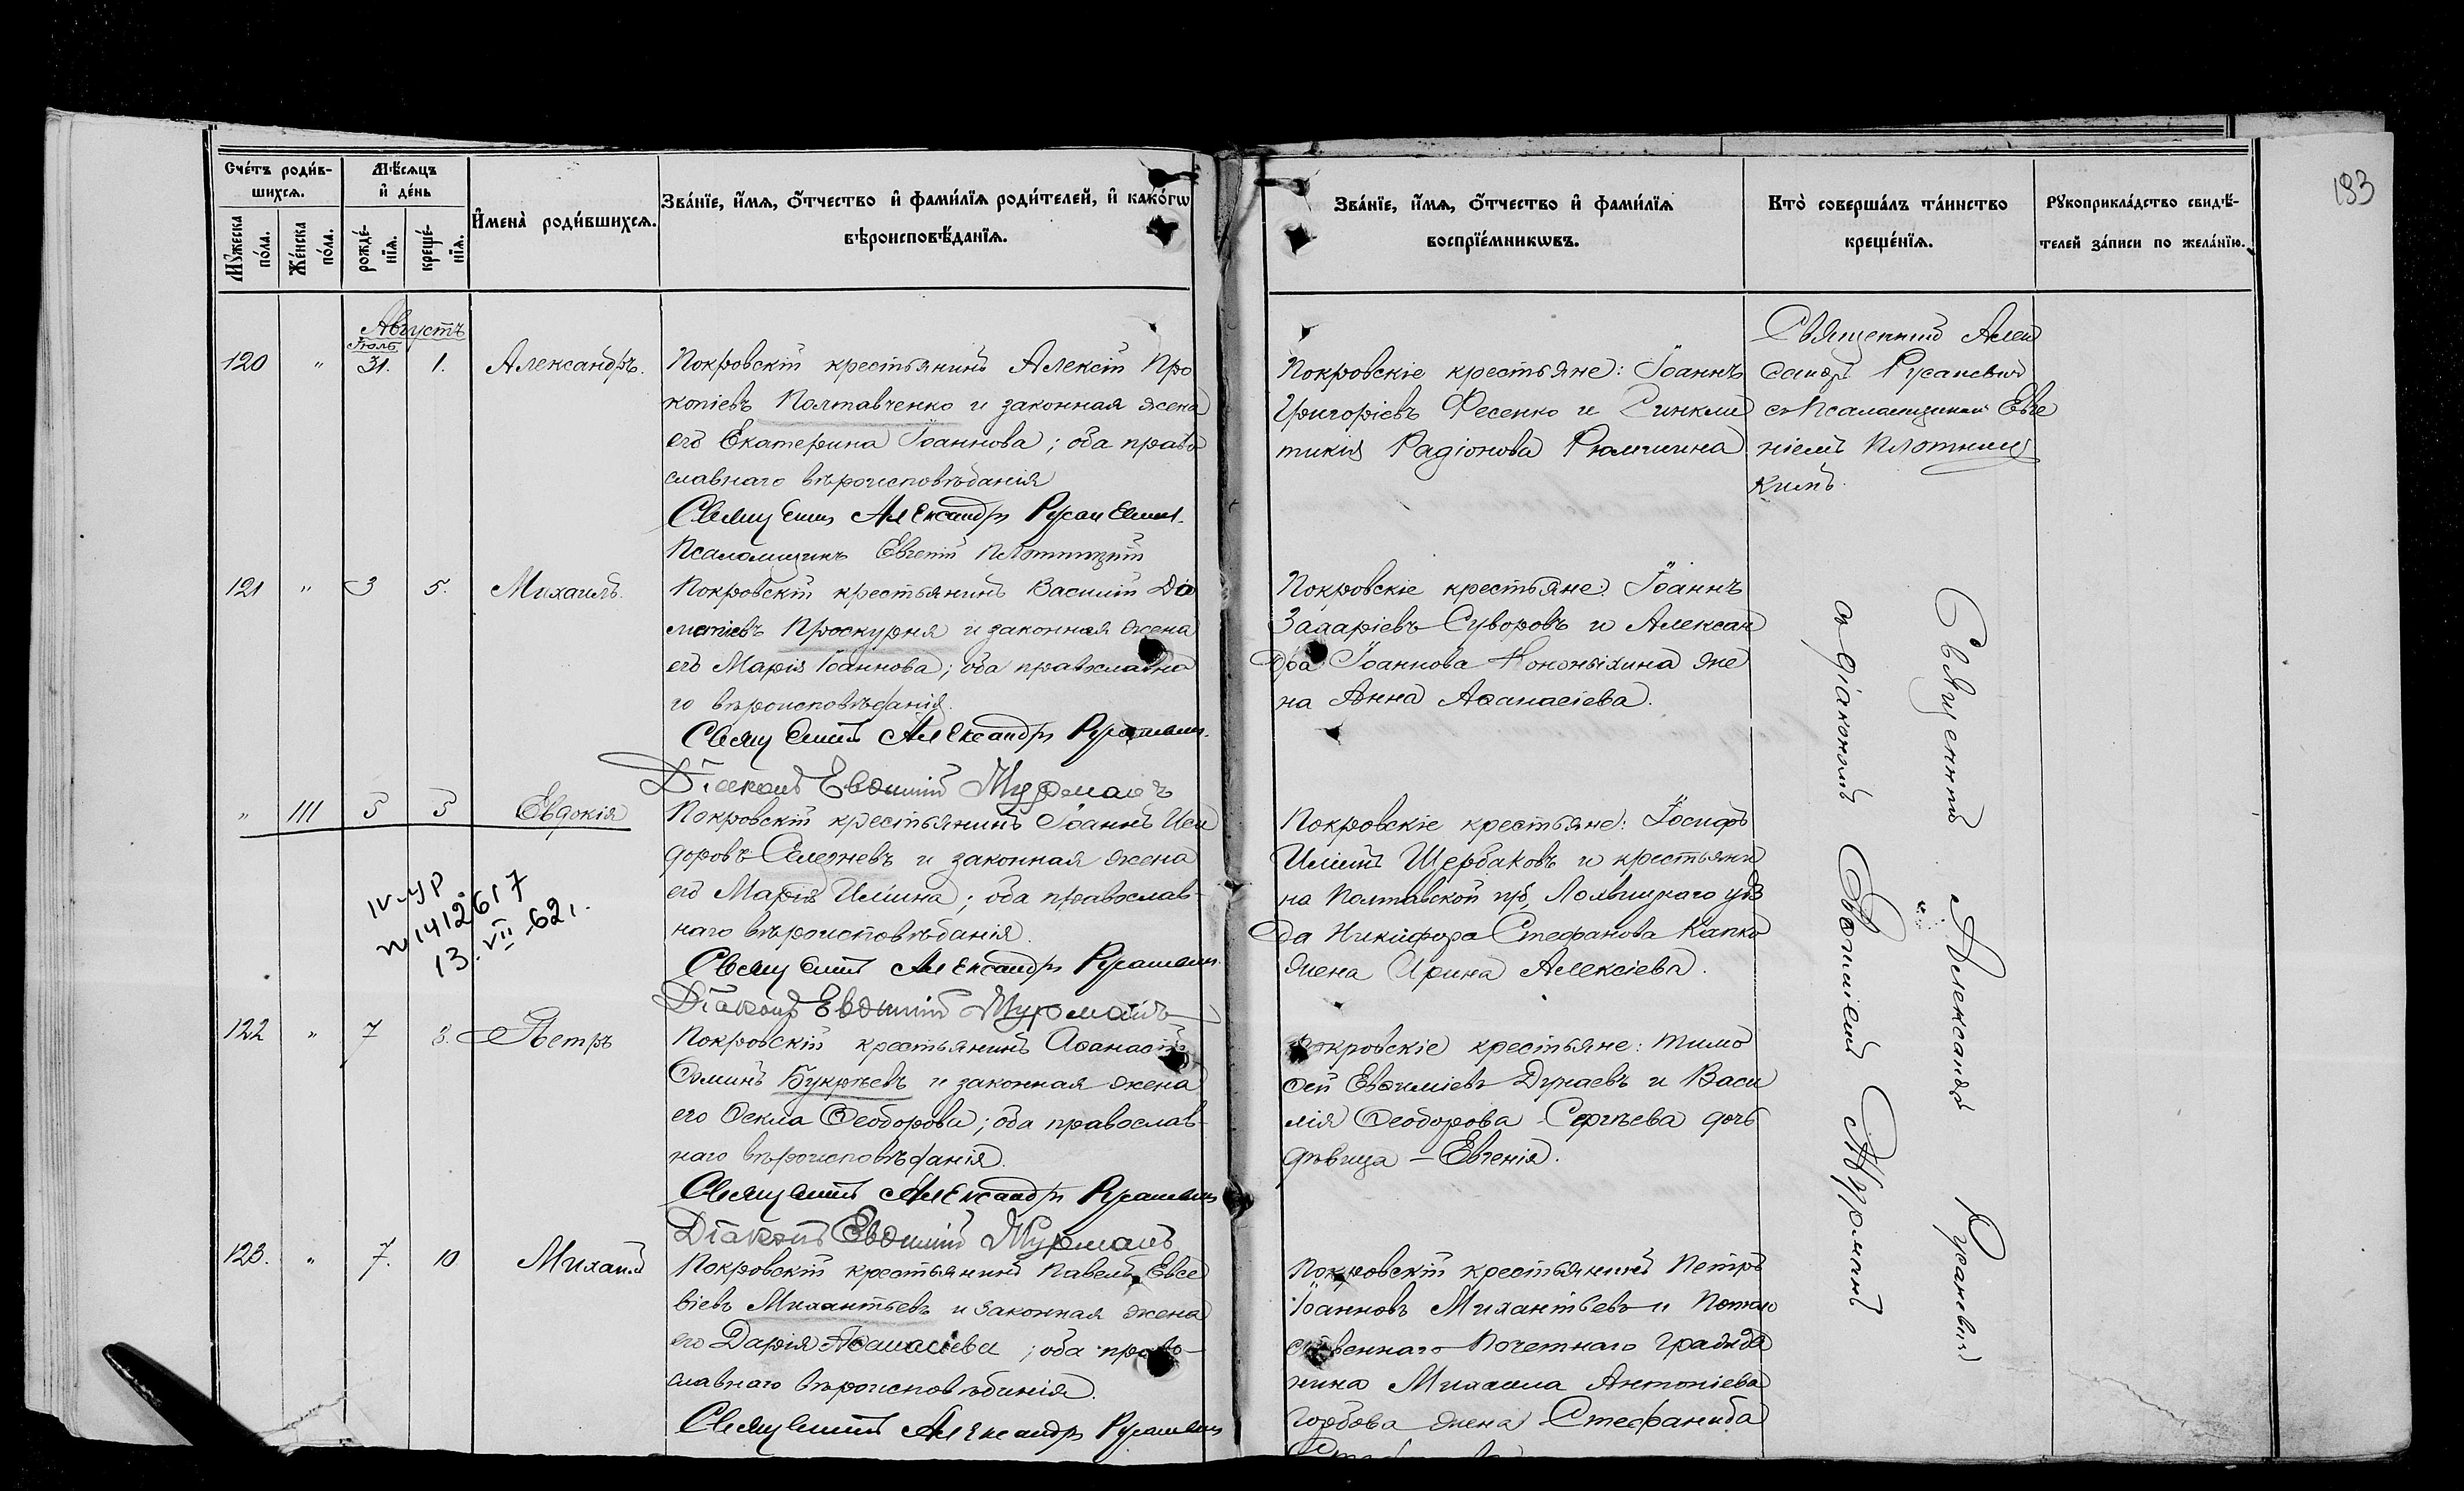 193
Счетъ роди́в-
шихсѧ.
Мѣсѧцъ
и҆ де́нь
И҆мена̀ роди́вшихсѧ.
Зва́нїе, и҆́мѧ, ѻ҆́тчество и҆ фами́лїѧ роди́телей, и҆ како́гѡ
вѣроисповѣ́данїѧ.
Мꙋ́жеска
по́ла.
Же́нска
по́ла.
рожде́-
нїѧ.
креще́-
нїѧ.
Зва́нїе, и҆́мѧ, ѻ҆́тчество и҆ фами́лїѧ
воспрїе́мникѡвъ.
Кто̀ соверша́лъ та́инство
креще́нїѧ.
Рꙋкоприкла́дство свидѣ́-
телей за́писи по жела́нїю.
Августъ
Іюль
120 " 31. 1. Александръ.
Покровскій крестьянинъ Алексій Про
копіевъ Полтавченко и законная жена
его Екатерина Іоаннова; оба право
славнаго вѣроисповѣданія
Священ Александръ Русаневич.
Псаломщикъ Евгеній Плотницкій
Покровскіе крестьяне: Іоаннъ
Григоріевъ Фесенко и Синкли
тикія Радіонова Рюмшина
Священник Алек
сандр Русаневич
съ Псаломщикомъ Евге
ніемъ Плотниц
кимъ.
121 " 3 5. Михаилъ.
Покровскій крестьянинъ Василій Дio
метіевъ Проскурня и законная жена
его Марія Іоаннова; оба православна
го вѣроисповѣданія.
Священникъ Александръ Русаневич.
Діаконъ Евѳимій Мурманъ
Покровскіе крестьяне: Іоаннъ
Захаріевъ Суворовъ и Алексан
дра Іоаннова Кононыхина же
на Анна Аѳанасіева.
" 111 5 5 Евдокія
Покровскій крестьянинъ Іоаннъ Иси
доровъ Селезневъ и законная жена
его Марія Ильина; оба православ-
наго вѣроисповѣданія.
Священникъ Александръ Русаневич.
Діаконъ Евѳимій Мурманъ
IV-УР
№1412617
13.VII-62г.
Покровскіе крестьяне: Іосифъ
Ильинъ Щербаковъ и крестьяни
на Полтавской губ, Лохвицкаго уѣз
да Никифора Стефанова Капко
жена Ирина Алексіева.
122 " 7 8. Петръ
Покровскій крестьянинъ Аѳанасій
Ѳоминъ Букрѣевъ и законная жена
его Ѳекла Ѳеодорова; оба православ-
наго вѣроисповѣданія.
Священникъ Александръ Русаневич
Діаконъ Евѳимій Мурманъ
Покровскіе крестьяне: Тимо
ѳей Евѳиміевъ Дунаевъ и Васи
лія Ѳеодорова Сергѣева дочь
дѣвица - Евгенія.
123. " 7. 10 Михаил
Покровскій крестьянинъ Павелъ Евсе
віевъ Милантьевъ и законная жена
его Дарія Аѳанасіева; оба право-
славнаго вѣроисповѣданія.
Священникъ Александръ Русаневич
Покровскій крестьянинъ Петръ
Іоанновъ Милантьевъ и Потом
ственнаго Почетнаго Гражда
нина Михаила Антоніева
Горбова жена Стефанида
Священникъ Александръ Русаневич
съ діакономъ Евѳиміемъ Мурманъ